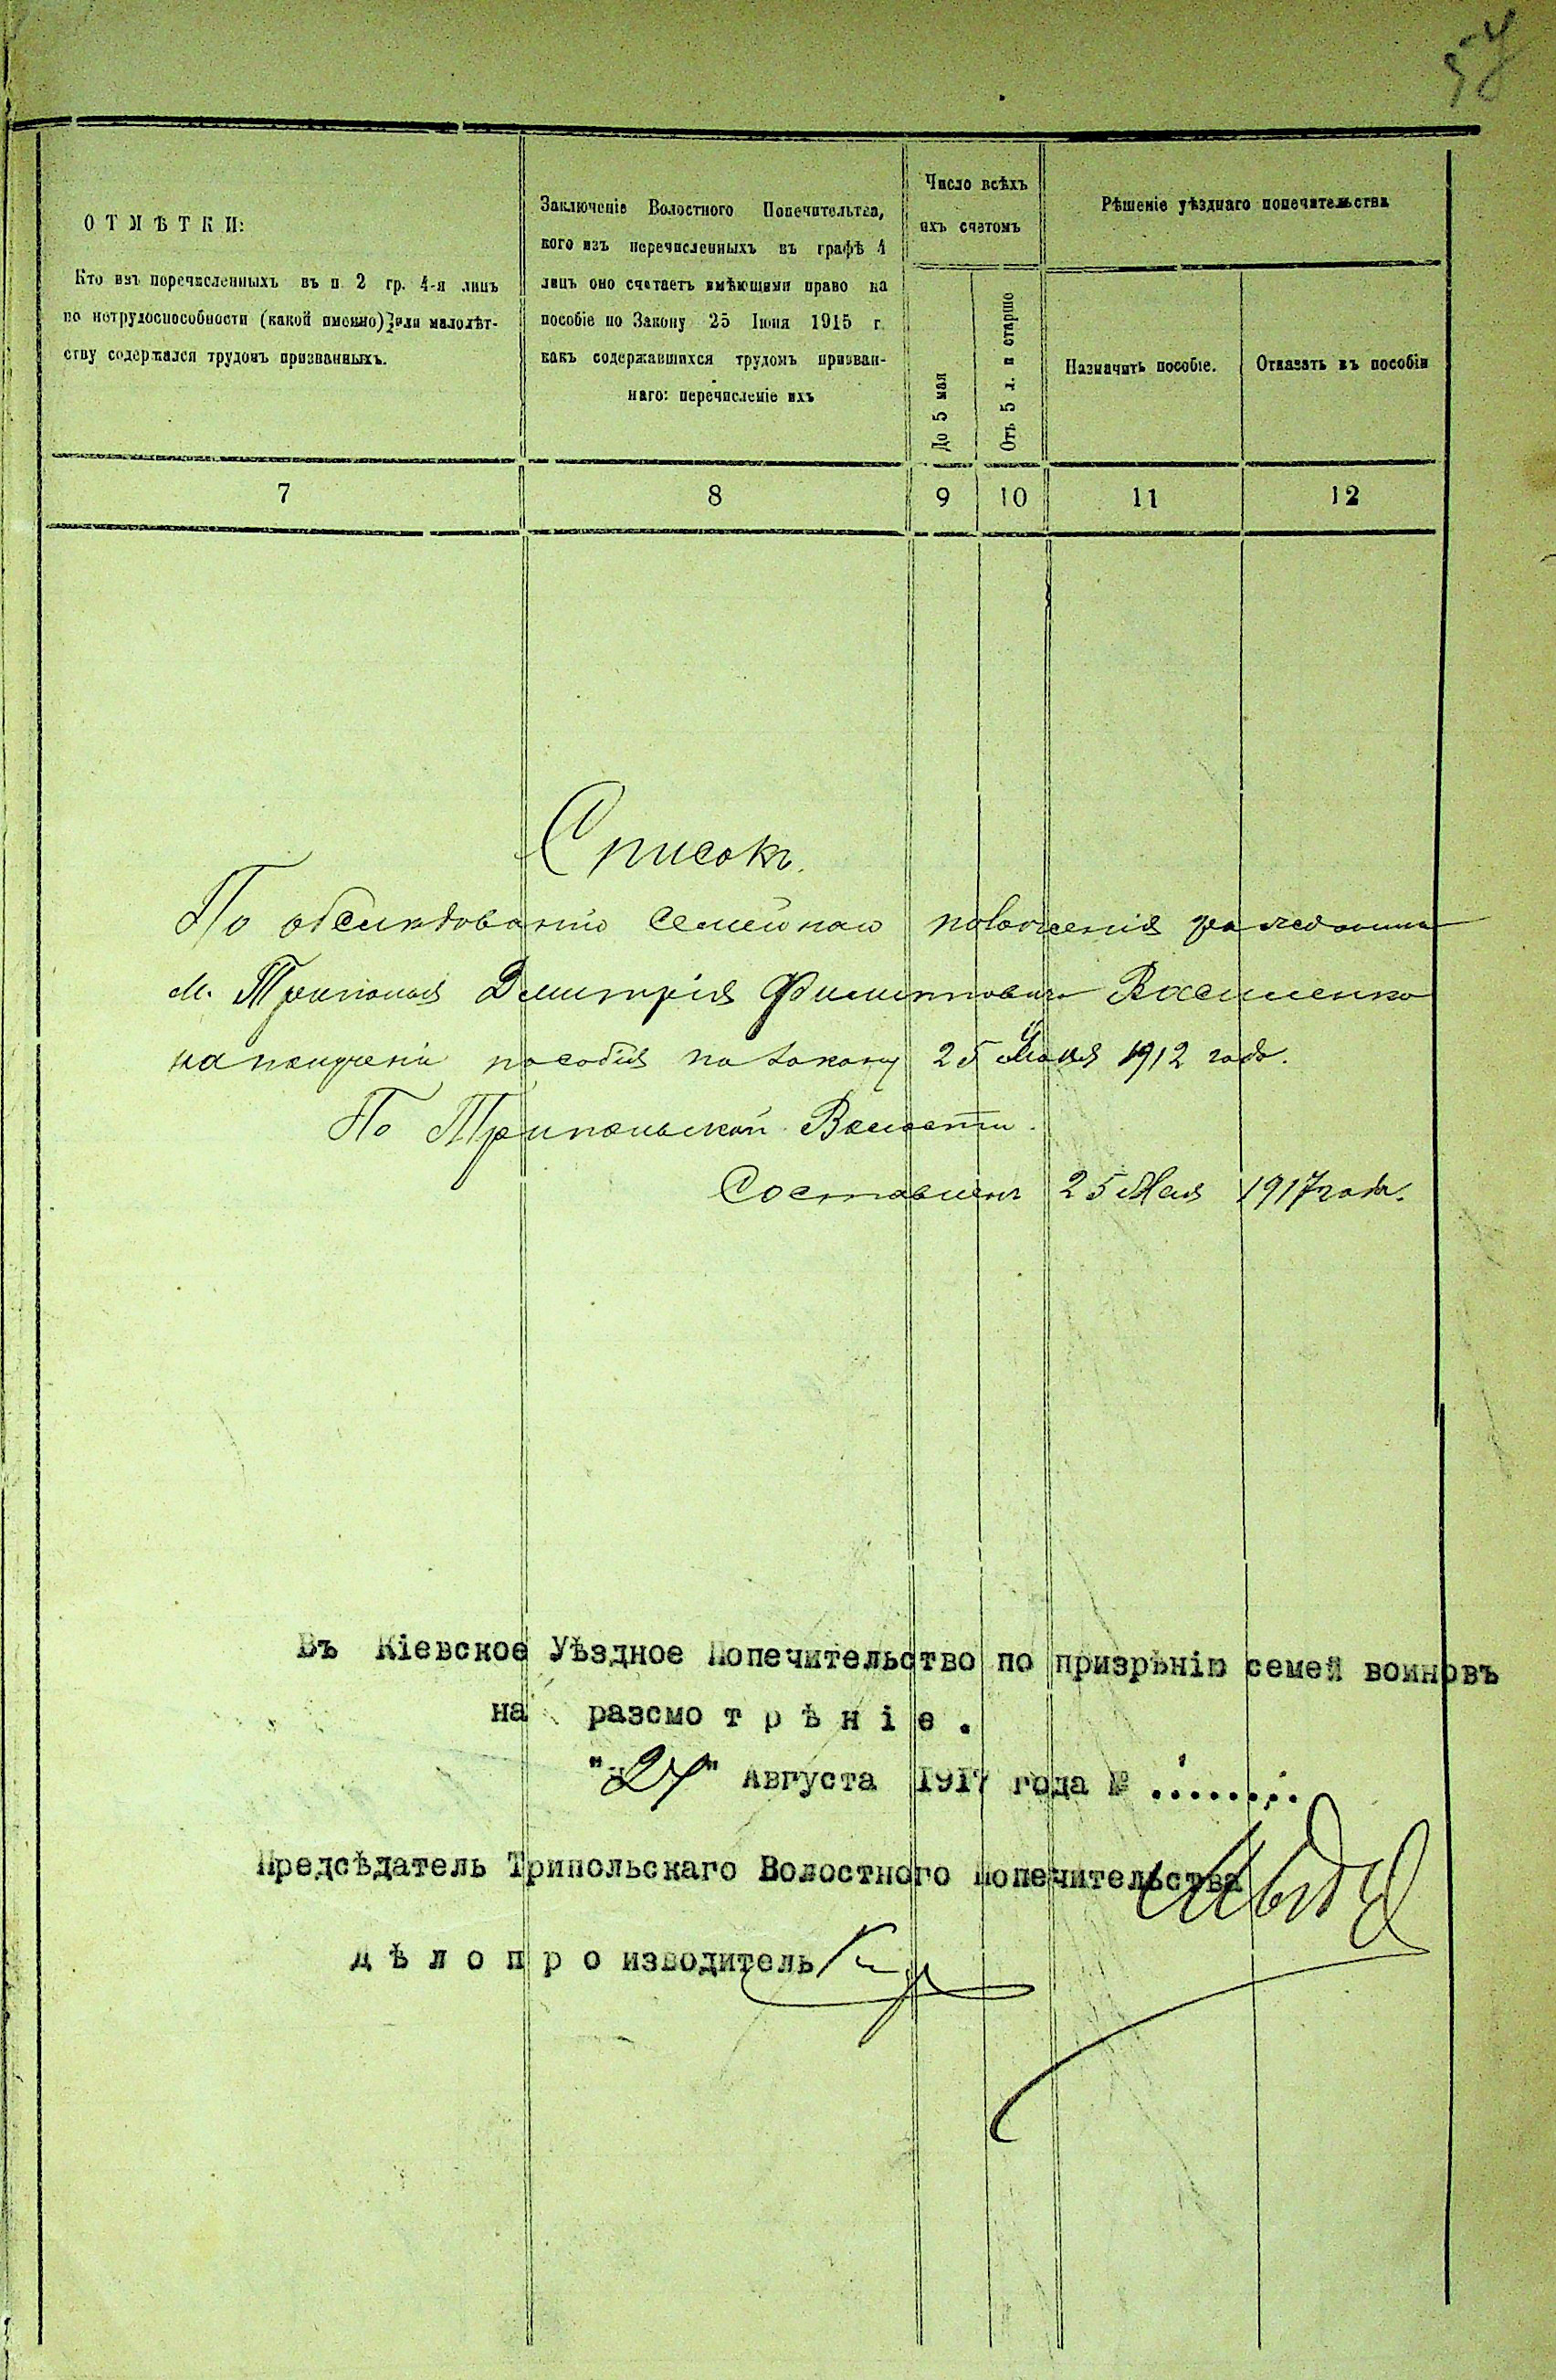 57
ОТМѢТКИ:
Кто изъ перечисленныхъ въ п 2 гр. 4-я лицъ
по нетрудоспособности (какой именно) или малолѣт-
ству содержался трудомъ призванныхъ.
Заключеніе Волостного Попечительтва,
кого изъ перечисленныхъ въ графѣ 4
лицъ оно считаетъ имѣющими право на
пособіе по Закону 25 Іюня 1915 г.
какъ содержавшихся трудомъ призван-
наго: перечисленіе ихъ
Число всѣхъ
ихъ счетомъ
До 5 мая
Отъ 5 л. и старше
Рѣшеніе уѣзднаго попечительства
Назначить пособіе.
Отказать въ пособіи
7 8 9 10 11 12
Списокъ.
По обслѣдованію семейнаго положенія
м. Триполья Димитрія Филипповича Василенко
на полученіи пособія по закону 25 Іюня 1912 года.
По Трипольской Волости.
Составленъ 25 Мая 1917 года.
Въ Кіевское Уѣздное Попечительство по призрѣнію семей воиновъ
на разсмотрѣніе.
"27" Августа 1917 года № ........
Предсѣдатель Трипольскаго Волостного Попечительства
Дѣлопроизводитель